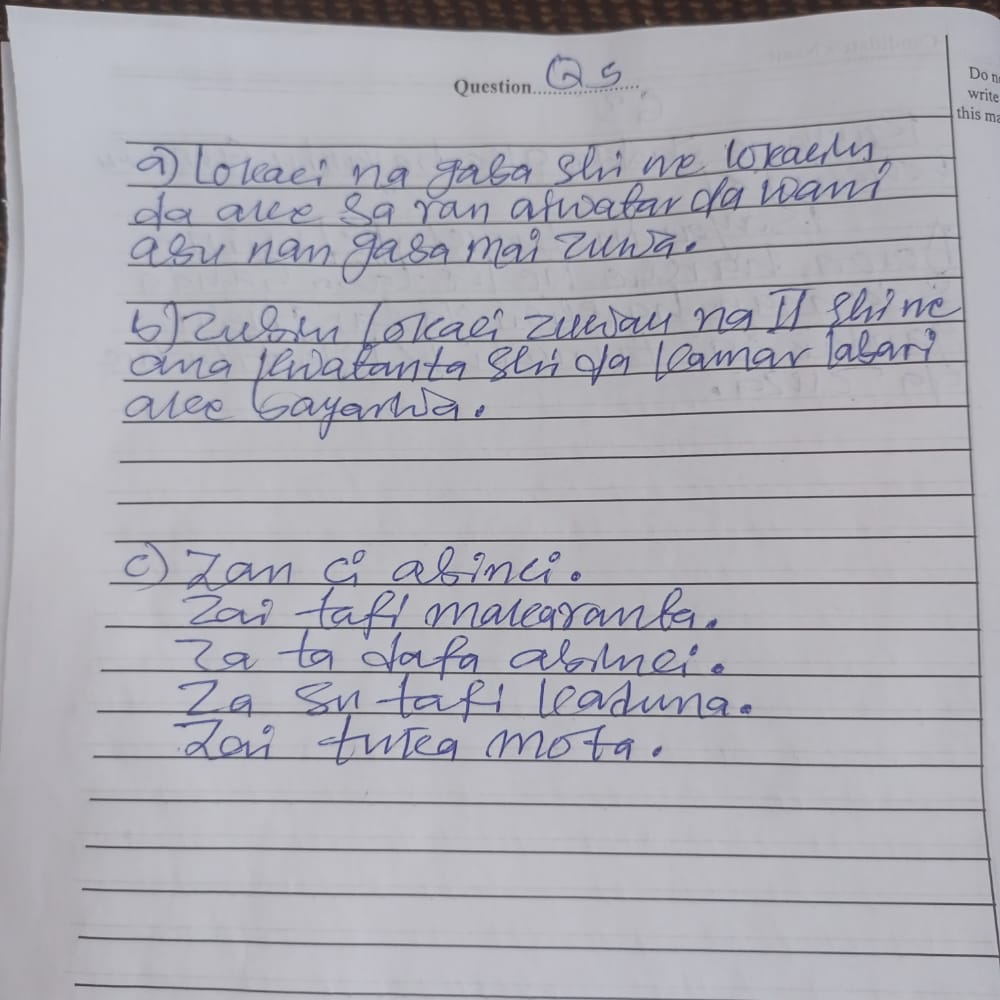 Question Q5
Do
write
this ma
a) Lokaci na gaba shi ne lokacin
da ake sa ran afwatar da wani
abu nan gaba mai zuwa.
b) Zubin lokaci zuwau na II shi ne
ana kwatanta shi da kamar labari
ake bayarwa.
c) Zan ci abinci.
Zai tafi makaranta.
Za ta dafa abinci.
Za su tafi Kaduna.
Zai tuka mota.